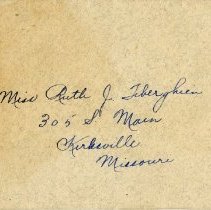 Miss Ruth J. Tiberghien
305 S. Main
Kirksville
Missouri